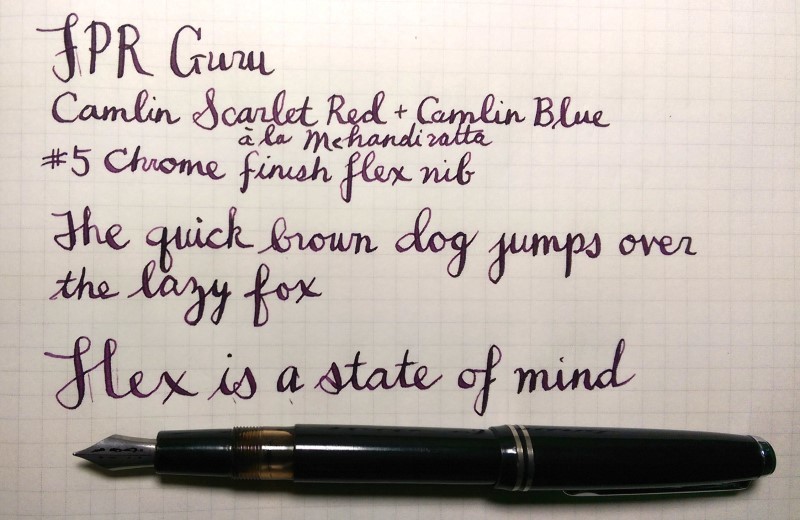 FPR Guru
Camlin Scarlet Red + Camlin Blue
à la Mehandiratta
#5 Chrome finish flex nib
The quick brown dog jumps over
the lazy fox
Flex is a state of mind